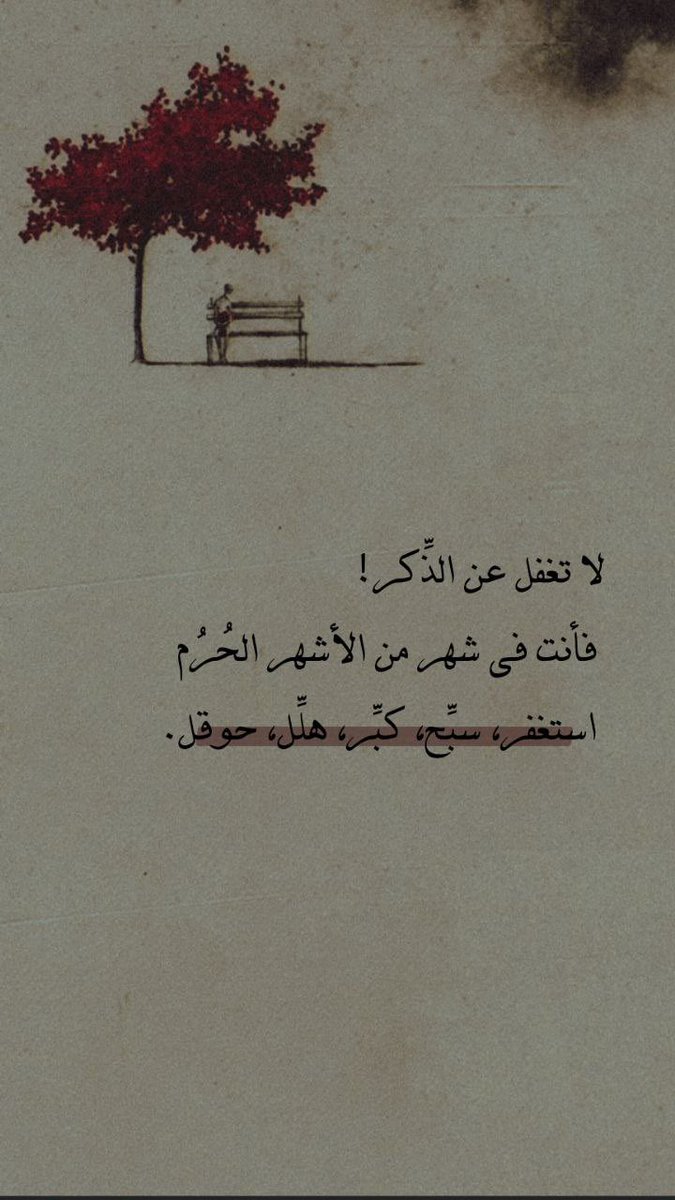 لا تغفل عن الذِّكر!
فأنت فى شهر من الأشهر الحُرُم
استغفر، سبِّح، كبِّر، هلِّل، حوقل.